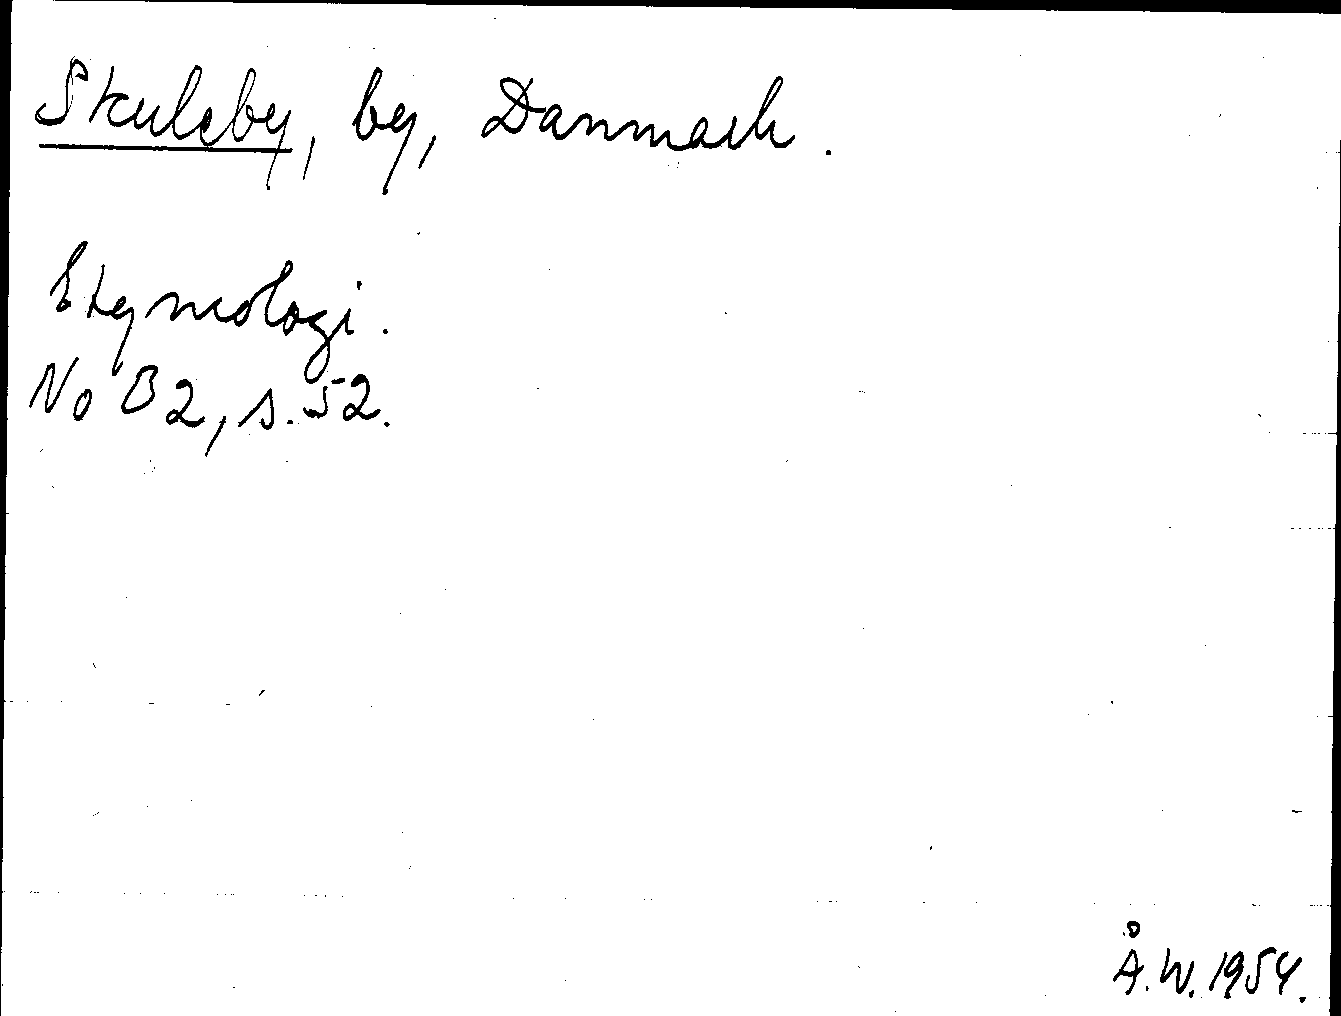 Skuleby, by, Danmark.
Etymologi.
NoB 2, s. 52.
Å.W. 1954.